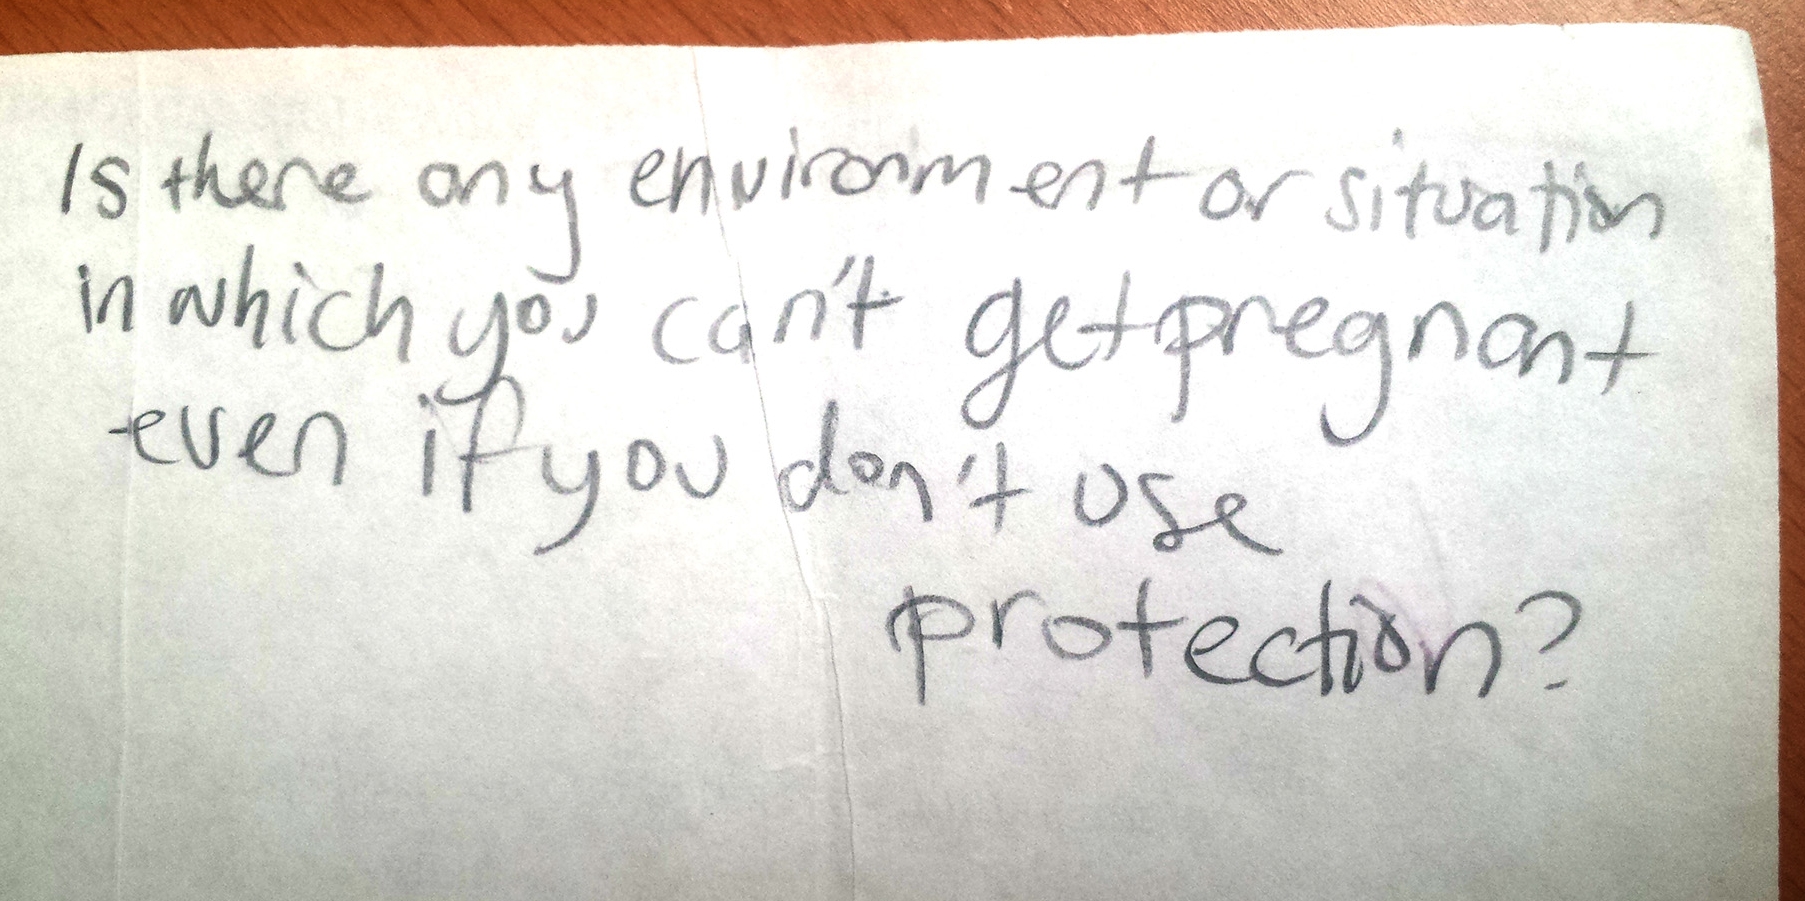 Is there any environment or situation
in which you can't get pregnant
even if you don't use
protection?